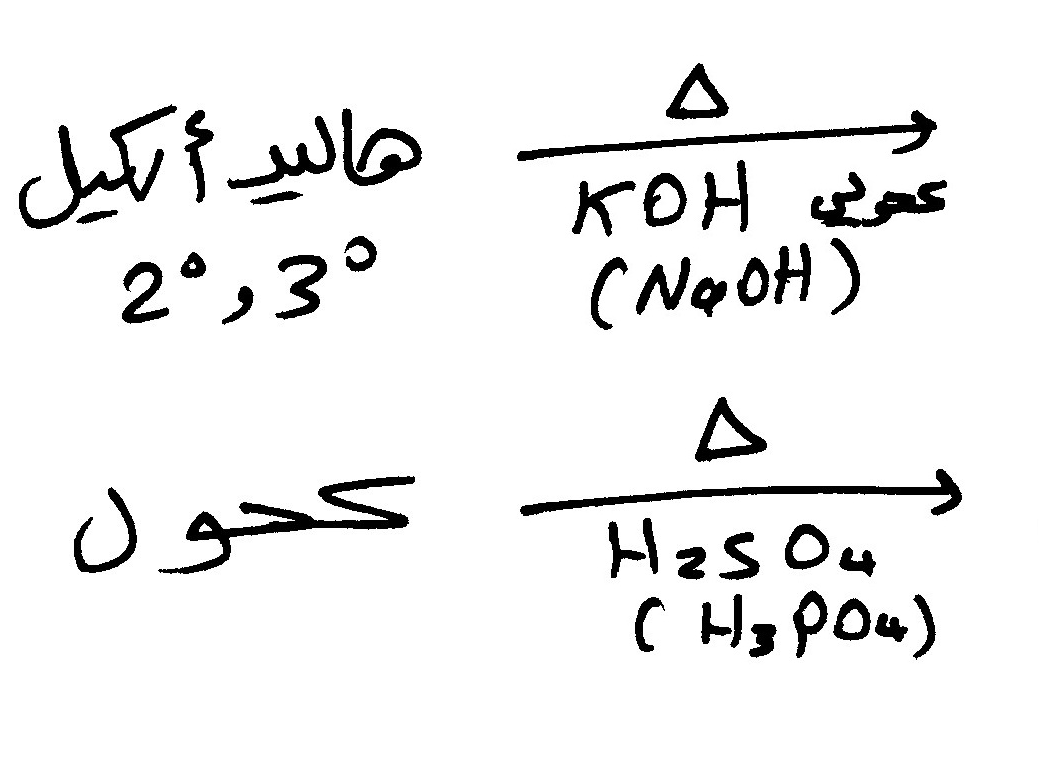 هاليد ألكيل
2°, 3°
Δ
KOH كحولي
(NaOH)
كحول
Δ
H2SO4
(H3PO4)